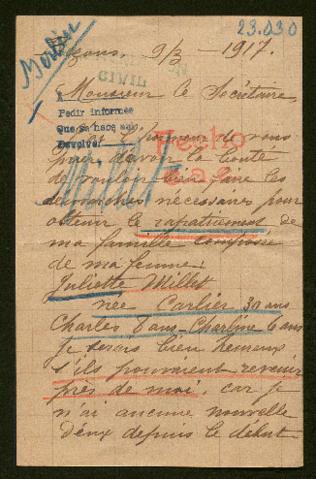 23.030
Berlin
9/3 - 1917.
CIVIL
Monsieur le Secrétaire,
Pedir informes
Que se hace aqui
Devolver
Fecho
l'honneur de vous
prier d'avoir la bonté
de vouloir bien faire les
Millet
demarches nécessaires pour
obtenir le rapatriement de
ma famille composée
de ma femme:
Juliette Millet
née Carlier 30 ans
Charles 8 ans - Charline 6 ans
Je serais bien heureux
s'ils pourraient revenir
près de moi, car je
n'ai aucune nouvelle
d'eux depuis le début